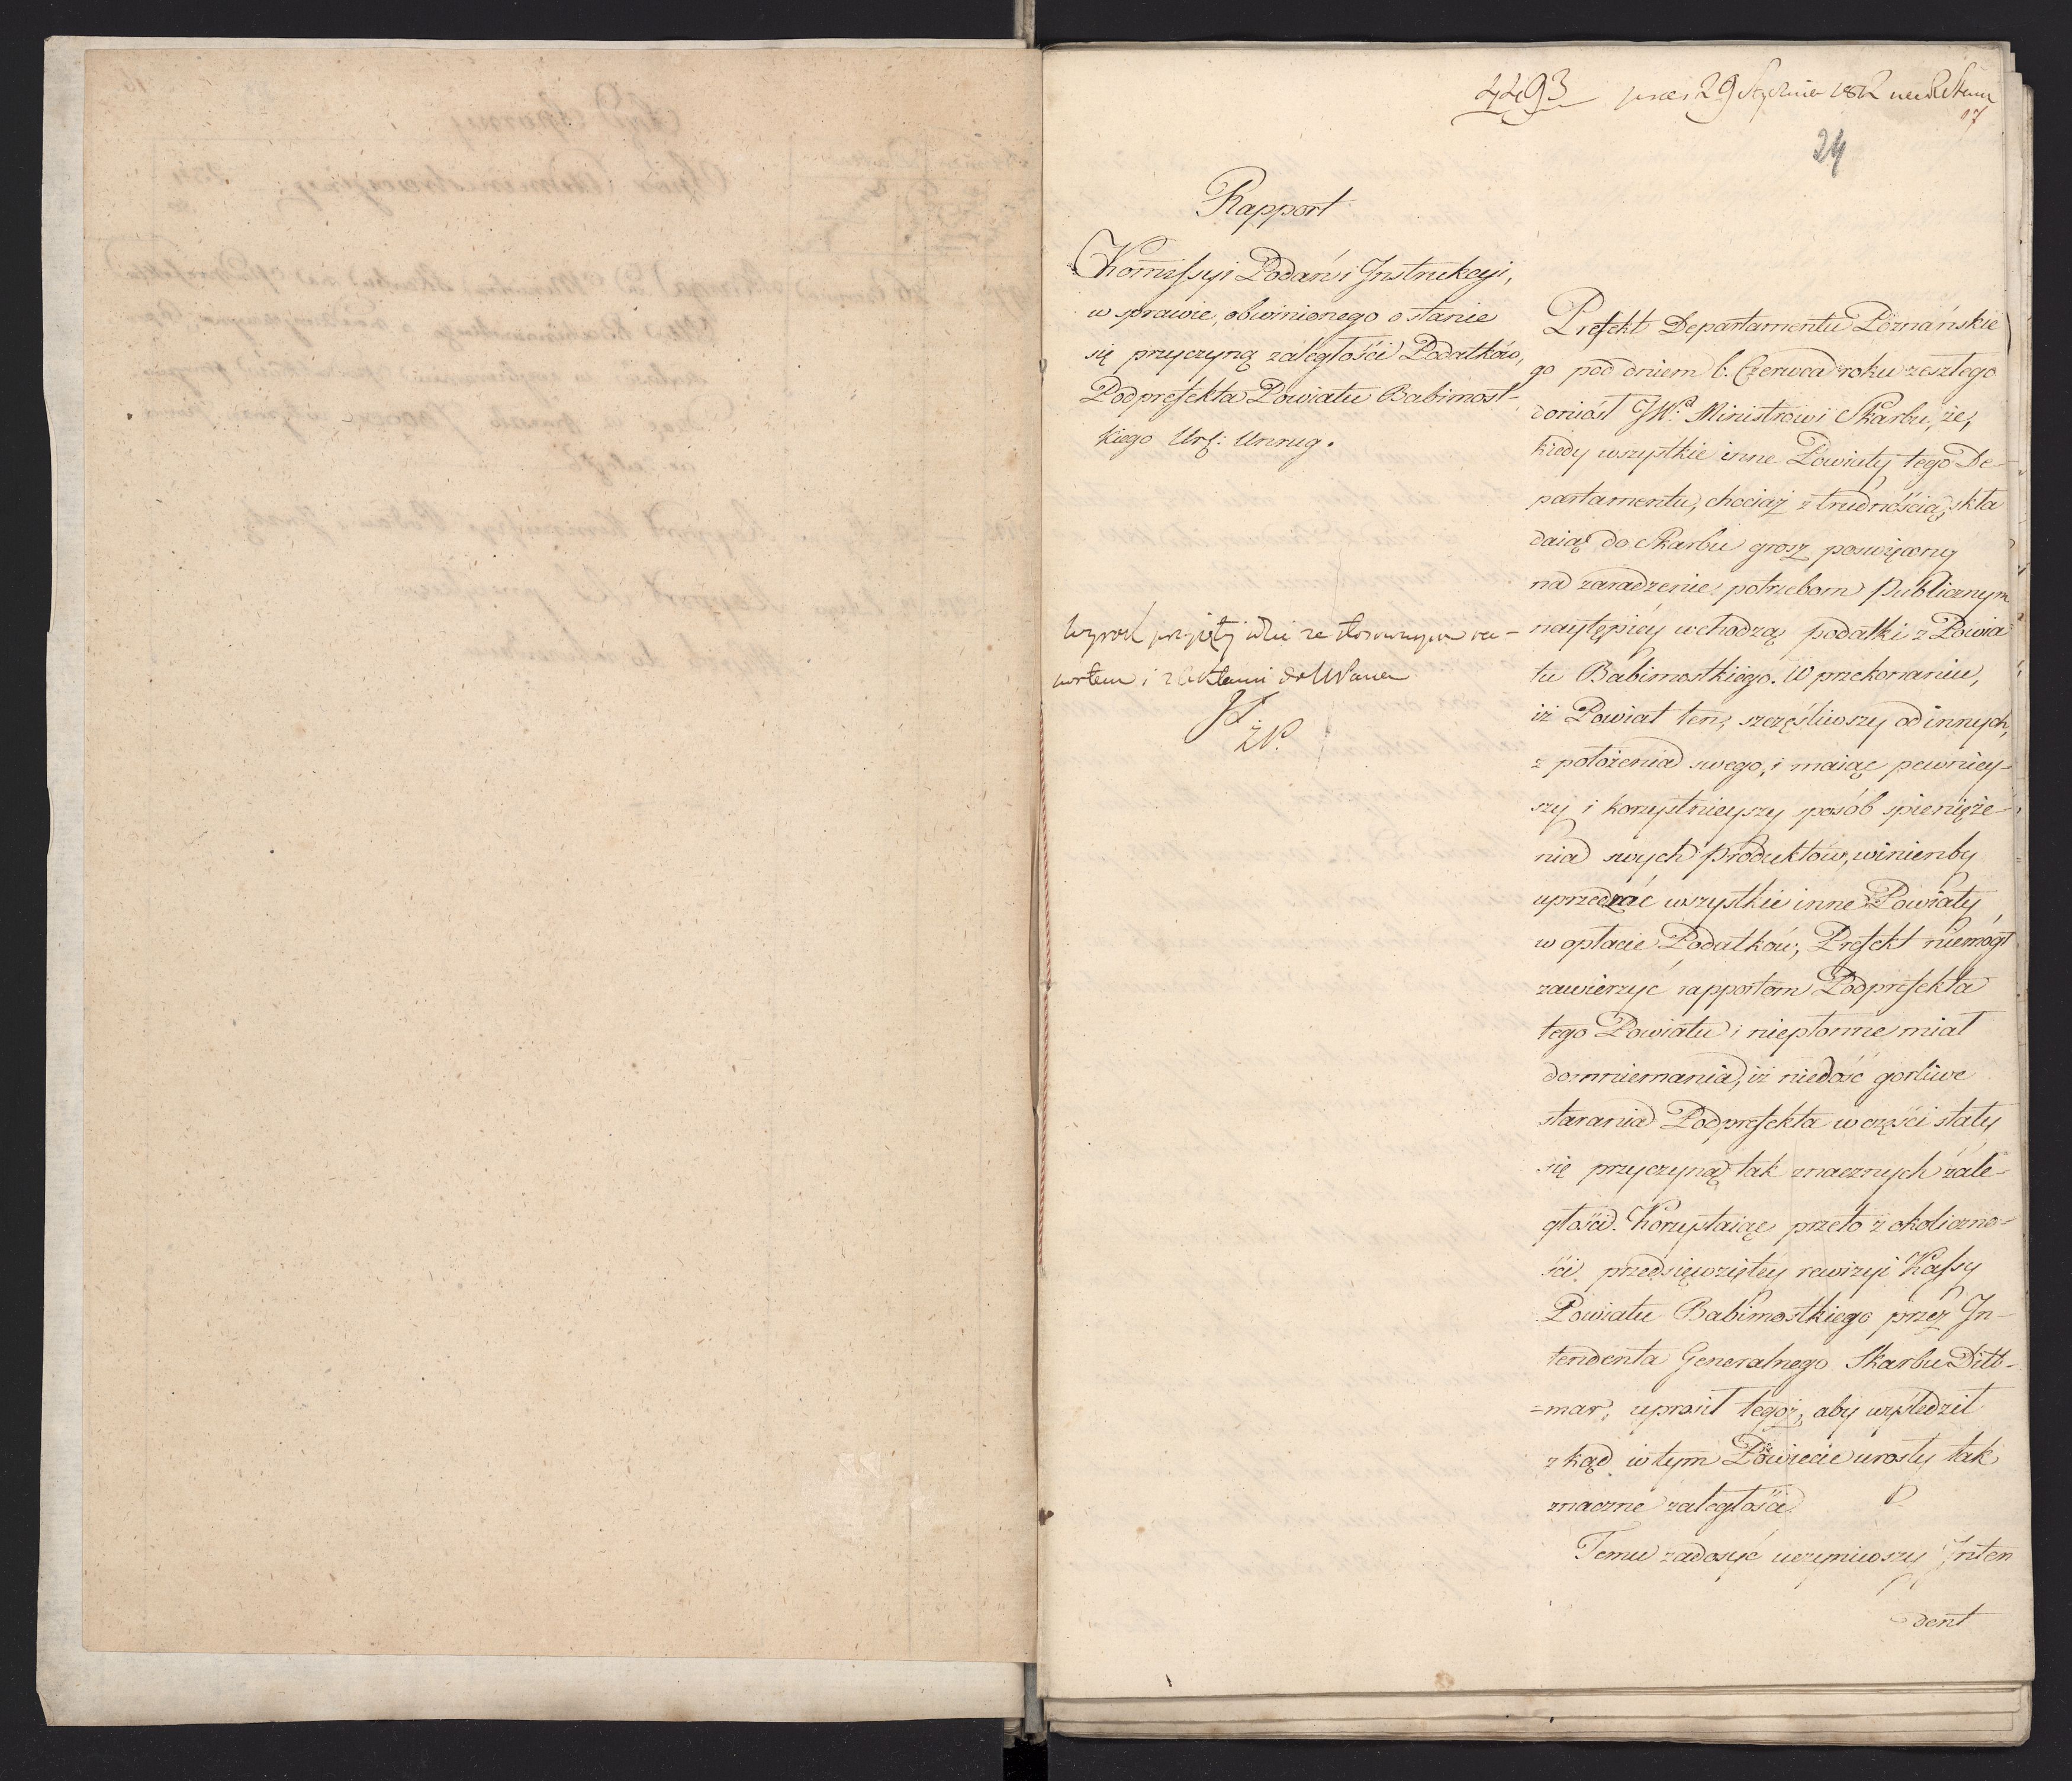 4493 29 Stycznia 1812
17
24
Rapport
Kommissyi Podań i Instrukcyi,
w sprawie, obwinionego o stanie
się przyczyną zaległości Podatków,
Podprefekta Powiatu Babimost-
kiego Ur: Unrug.
i z aktami do
Prefekt Departamentu Poznańskie
go pod dniem 6. Czerwca roku zeszłego
doniósł JW. Ministrowi Skarbu, że,
kiedy wszystkie inne Powiaty tego De-
partamentu, chociaż z trudnością, skła
daią do Skarbu grosz poswięcony
na zaradzenie potrzebom Publicznym
naytępiéy wchodzą podatki z Powia
tu Babimostkiego. W przekonaniu,
iż Powiat ten, szczęśliwszy od innych,
z położenia swego, i maiąc pewniey-
szy i korzystnieyszy sposób spienięże-
nia swych Produktów, winienby
uprzedzać wszystkie inne Powiaty
w opłacie Podatków, Prefekt niemógł
zawierzyć rapportom Podprefekta
tego Powiatu i niepłonne miał
domniemania, iż niedość gorliwe
starania Podprefekta w części stały
się przyczyną tak znacznych zale-
głości. Korzystaiąc przeto z okoliczno-
ści przedsięwziętéy rewizyi Kassy
Powiatu Babimostkiego przez In-
tendenta Generalnego Skarbu Ditt-
=mar, uprosił tegoż, aby wyśledził
z kąd w tym Powiecie urosły tak
znaczne zaległości.
Temu zadosyć uczyniwszy Inten
dent